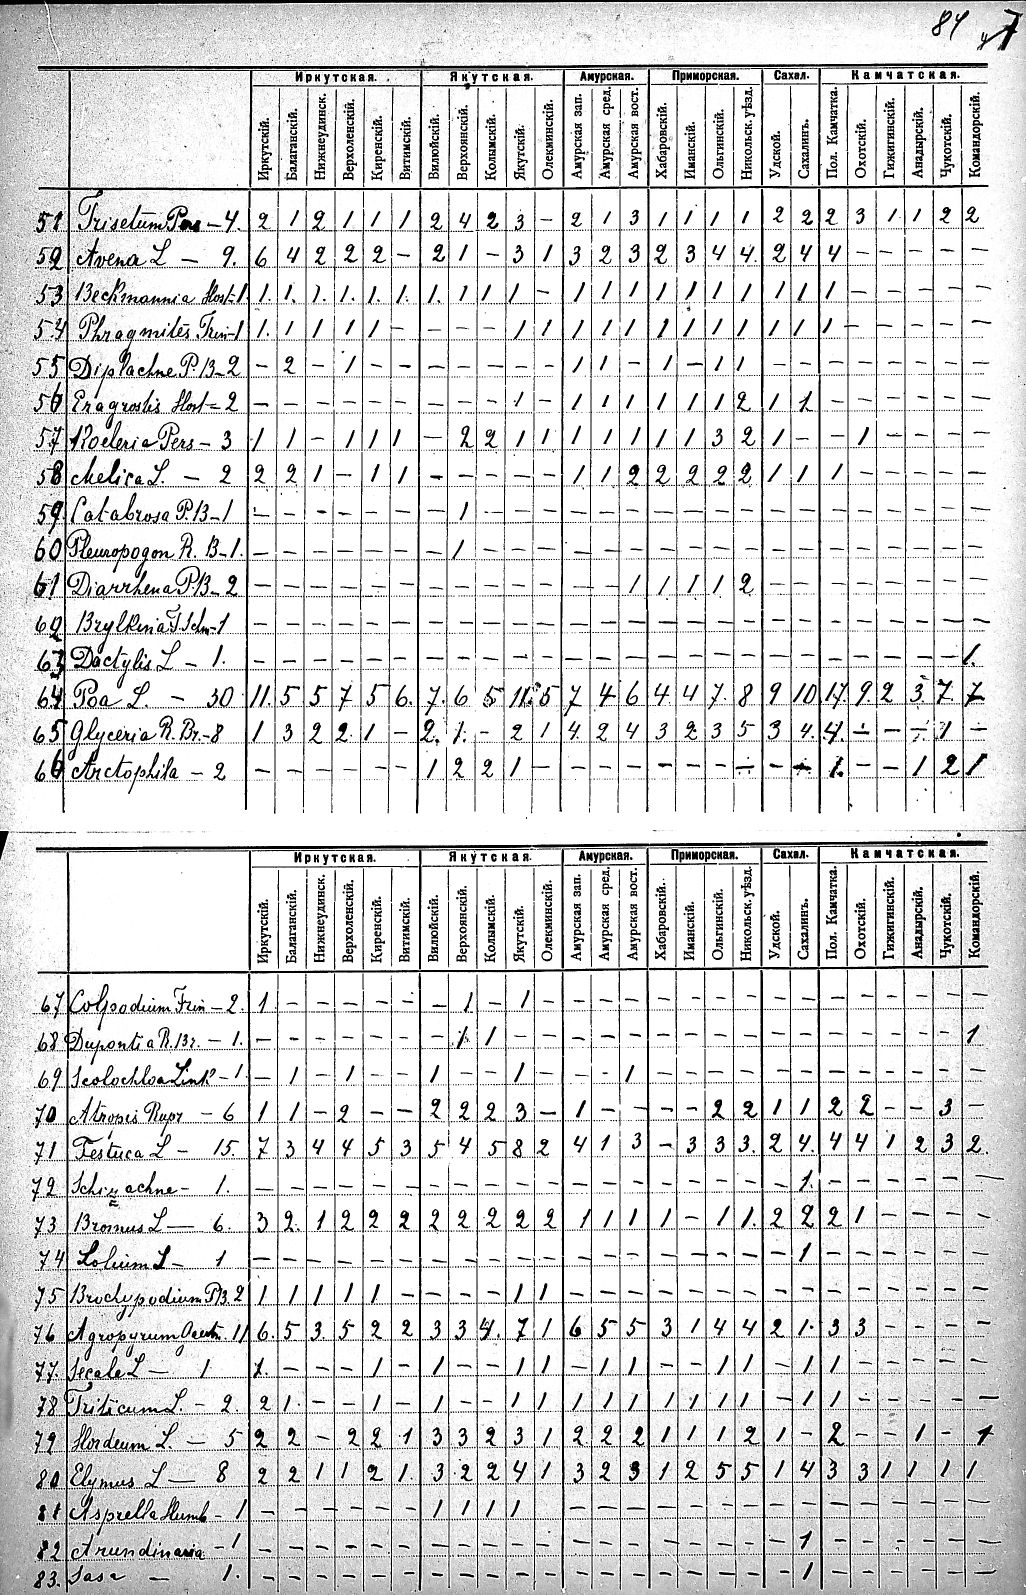 84 47
Иркутская. Якутская. Амурская. Приморская. Сахал. Камчатская.
Иркутскій. Балаганскій. Нижнеудинск. Верхоленскій. Киренскій. Витимскій. Вилюйскій. Верхоянскій. Колымскій. Якутскій. Олекминскій. Амурская зап. Амурская сред. Амурская вост. Хабаровскій. Иманскій. Ольгинскій. Никольск. уѣзд. Удской. Сахалинъ. Пол. Камчатка. Охотскій. Гижигинскій. Анадырскій. Чукотскій. Командорскій.
51 Trisetum Pers – 4. 2 1 2 1 1 1 2 4 2 3 – 2 1 3 1 1 1 1 2 2 2 3 1 1 2 2
52 Avena L – 9. 6 4 2 2 2 – 2 1 – 3 1 3 2 3 2 3 4 4. 2 4 4 – – – – –
53 Beckmannia Host–1 1. 1. 1. 1. 1. 1. 1. 1 1 1 – 1 1 1 1 1 1 1 1 1 1 – – – – –
54 Phragmites Trin–1 1. 1 1 1 1 – – – – 1 1 1 1 1 1 1 1 1 1 1 1 – – – – –
55 Diplachne P. B–2 – 2 – 1 – – – – – – – 1 1 – 1 – 1 1 – – – – – – – –
56 Eragrostis Host–2 – – – – – – – – – 1 – 1 1 1 1 1 1 2 1 1 – – – – – –
57 Koeleria Pers – 3 1 1 – 1 1 1 – 2 2 1 1 1 1 1 1 1 3 2 1 – – 1 – – – –
58 Melica L. – 2 2 2 1 – 1 1 – – – – – 1 1 2 2 2 2 2 1 1 1 – – – – –
59. Catabrosa P. B–1 – – – – – – – 1 – – – – – – – – – – – – – – – – – –
60 Pleuropogon R. B–1. – – – – – – – 1 – – – – – – – – – – – – – – – – – –
61 Diarrhena P. B–2 – – – – – – – – – – – – – 1 1 1 1 2 – – – – – – – –
62 Brylkinia F. Schm–1 – – – – – – – – – – – – – – – – – – – – – – – – – –
63 Dactylis L – 1. – – – – – – – – – – – – – – – – – – – – – – – – – 1.
64 Poa L. – 30 11. 5 5 7 5 6. 7. 6 5 11. 5 7 4 6 4 4 7. 8 9 10 17. 9. 2 3. 7. 7
65 Glyceria R. Br.–8 1 3 2 2. 1 – 2. 1. – 2 1 4. 2 4 3 2 3 5 3 4. 4. – – – 1 –
66 Arctophila – 2 – – – – – – 1 2 2 1 – – – – – – – – – – 1. – – 1 2 1
Иркутская. Якутская. Амурская. Приморская. Сахал. Камчатская.
Иркутскій. Балаганскій. Нижнеудинск. Верхоленскій. Киренскій. Витимскій. Вилюйскій. Верхоянскій. Колымскій. Якутскій. Олекминскій. Амурская зап. Амурская сред. Амурская вост. Хабаровскій. Иманскій. Ольгинскій. Никольск. уѣзд. Удской. Сахалинъ. Пол. Камчатка. Охотскій. Гижигинскій. Анадырскій. Чукотскій. Командорскій.
67 Colpodium Trin – 2. 1 – – – – – – 1 – 1 – – – – – – – – – – – – – – – –
68 Dupontia R. Br. – 1. – – – – – – – 1 1 – – – – – – – – – – – – – – – – 1
69 Scolochloa Link – 1 – 1 – 1 – – 1 – – 1 – – – 1 – – – – – – – – – – – –
70 Atropis Rupr – 6 1 1 – 2 – – 2 2 2 3 – 1 – – – – 2 2 1 1 2 2 – – 3 –
71 Festuca L – 15. 7 3 4 4 5 3 5 4 5 8 2 4 1 3 – 3 3 3. 2 4. 4 4 1 2 3 2.
72 Schizachne – 1. – – – – – – – – – – – – – – – – – – – 1. – – – – – –
73 Bromus L — 6. 3 2. 1 2 2 2 2 2 2 2 2 1 1 1 1 – 1 1. 2 2 2 1 – – – –
74 Lolium L – 1 – – – – – – – – – – – – – – – – – – – 1 – – – – – –
75 Brachypodium P. B. 2 1 1 1 1 1 – – – – 1 1 – – – – – – – – – – – – – – –
76 Agropyrum Gaertn. 11 6. 5 3. 5 2 2 3 3 4. 7 1 6 5 5 3 1 4 4 2 1. 3 3 – – – –
77. Secale L — 1 1. – – – 1 – 1 – – 1 1 – 1 1 – – 1 1 – 1 1 – – – – –
78 Triticum L. – 2. 2 1. – – 1 – 1 – – 1 1 1 1 1 1 1 1 1 – 1 1 – – – – –
79 Hordeum L. — 5 2 2 – 2 2 1 3 3 2 3 1 2 2 2 1 1 1 2 1 – 2 – – 1 – 1
80 Elymus L — 8 2 2 1 1 2 1. 3. 2 2 4 1 3 2 3 1 2 5 5 1 4 3 3 1 1 1 1
81 Asprella Humb – 1 – – – – – – 1 1 1 1 – – – – – – – – – – – – – – – –
82 Arundinaria – 1 – – – – – – – – – – – – – – – – – – – 1 – – – – – –
83. Sasa — 1. – – – – – – – – – – – – – – – – – – – 1 – – – – – –